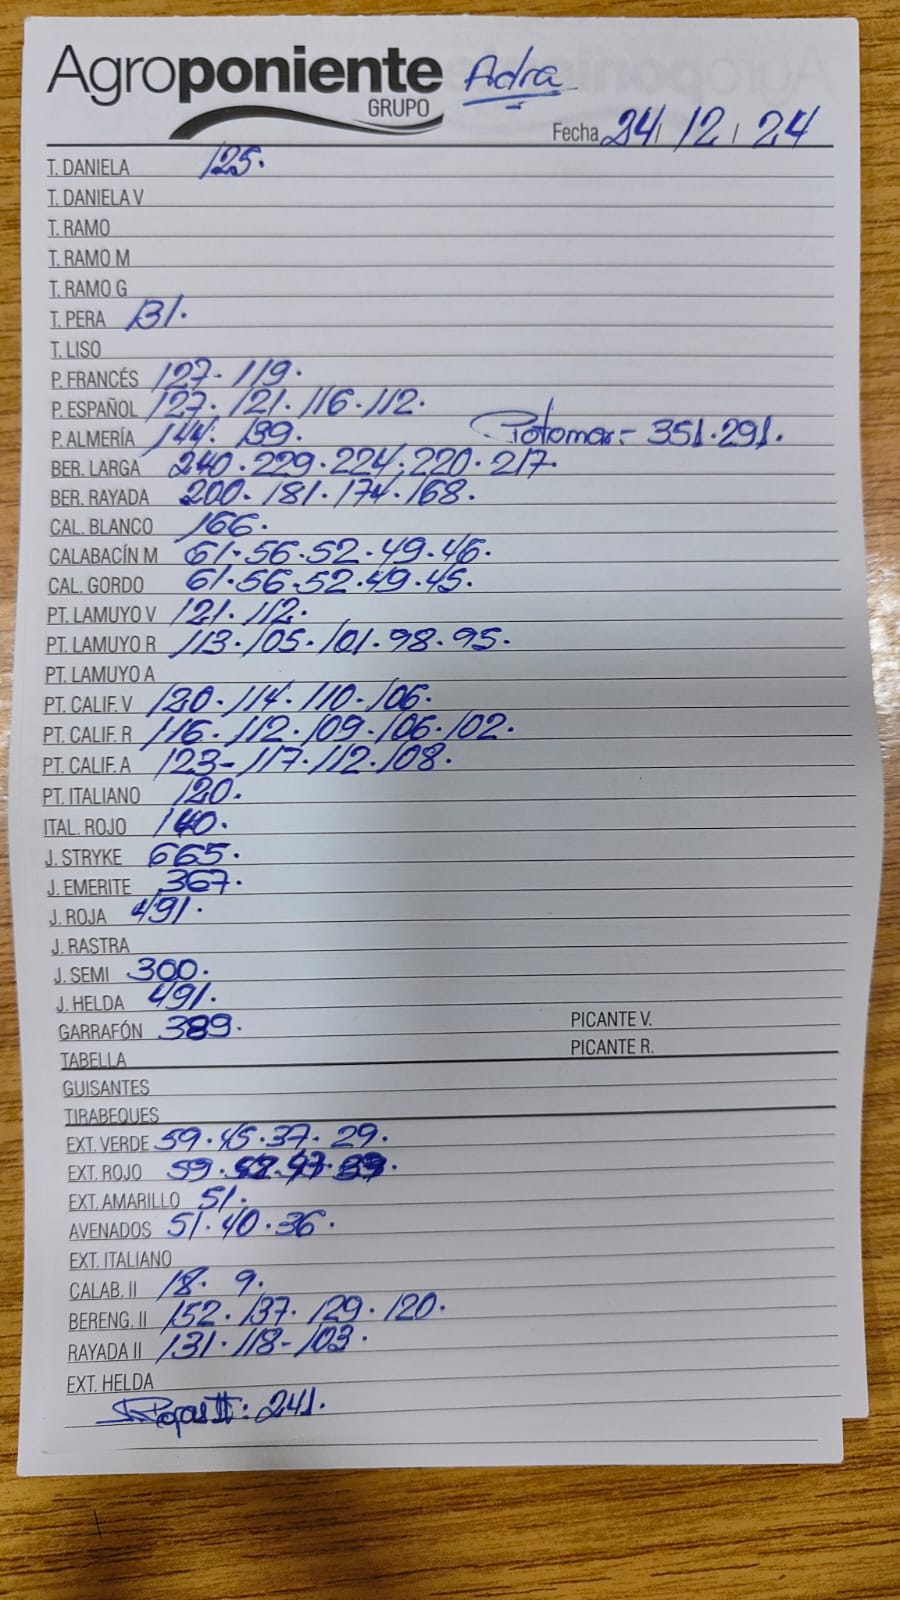 Agroponiente Adra
GRUPO
Fecha 24/12/24
T. DANIELA 125.
T. DANIELA V
T. RAMO
T. RAMO M
T. RAMO G
T. PERA 131.
T. LISO
P. FRANCÉS 127. 119.
P. ESPAÑOL 127. 121. 116. 112.
P. ALMERÍA 144. 139. Potomar= 351.291.
BER. LARGA 240.229.224.220.217.
BER. RAYADA 200.181.174.168.
CAL. BLANCO 166.
CALABACÍN M 61.56.52.49.46.
CAL. GORDO 61.56.52.49.45.
PT. LAMUYO V 121.112.
PT. LAMUYO R 113.105.101.98.95.
PT. LAMUYO A
PT. CALIF. V 120.114.110.106.
PT. CALIF. R 116.112.109.106.102.
PT. CALIF. A 123-117.112.108.
PT. ITALIANO 120.
ITAL. ROJO 140.
J. STRYKE 665.
J. EMERITE 367.
J. ROJA 491.
J. RASTRA
J. SEMI 300.
J. HELDA 491.
GARRAFÓN 389. PICANTE V.
TABELLA PICANTE R.
GUISANTES
TIRABEQUES
EXT. VERDE 59.45.37.29.
EXT. ROJO 59.
EXT. AMARILLO 51.
AVENADOS 51.40.36.
EXT. ITALIANO
CALAB. II 18. 9.
BERENG. II 152.137.129.120.
RAYADA II 131.118-103.
EXT. HELDA
Rojas II: 241.